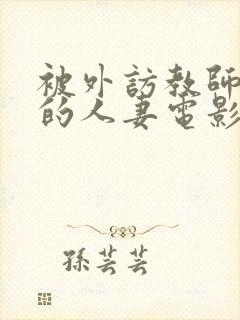 被外訪教師
的人妻電影
孫芸芸